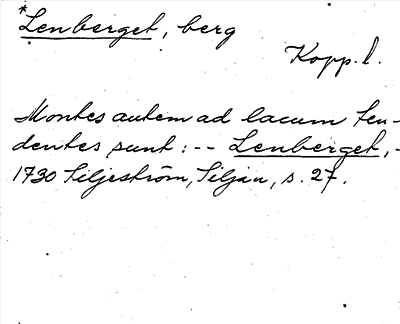 *Lenberget, berg
Kopp. l.
Montes autem ad lacum ten-
dentes sunt: -- Lenberget, -
1730 Siljeström, Siljan, s. 27.